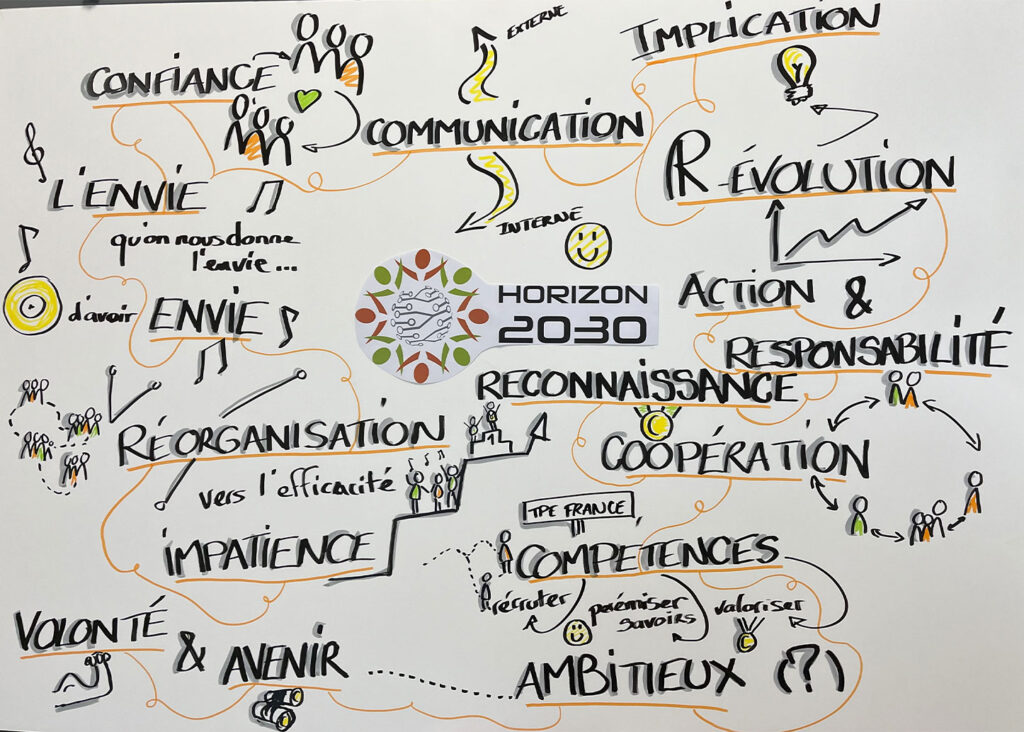 CONFIANCE
EXTERNE
IMPLICATION
COMMUNICATION
L'ENVIE
qu'on nous donne
l'envie...
d'avoir ENVIE
INTERNE
R-ÉVOLUTION
HORIZON
2030
ACTION &
RESPONSABILITÉ
RECONNAISSANCE
COOPÉRATION
RÉORGANISATION
vers l'efficacité
IMPATIENCE
TPE FRANCE
COMPÉTENCES
récruter
pérémiser
savoirs
valoriser
VOLONTÉ
& AVENIR
AMBITIEUX (?)